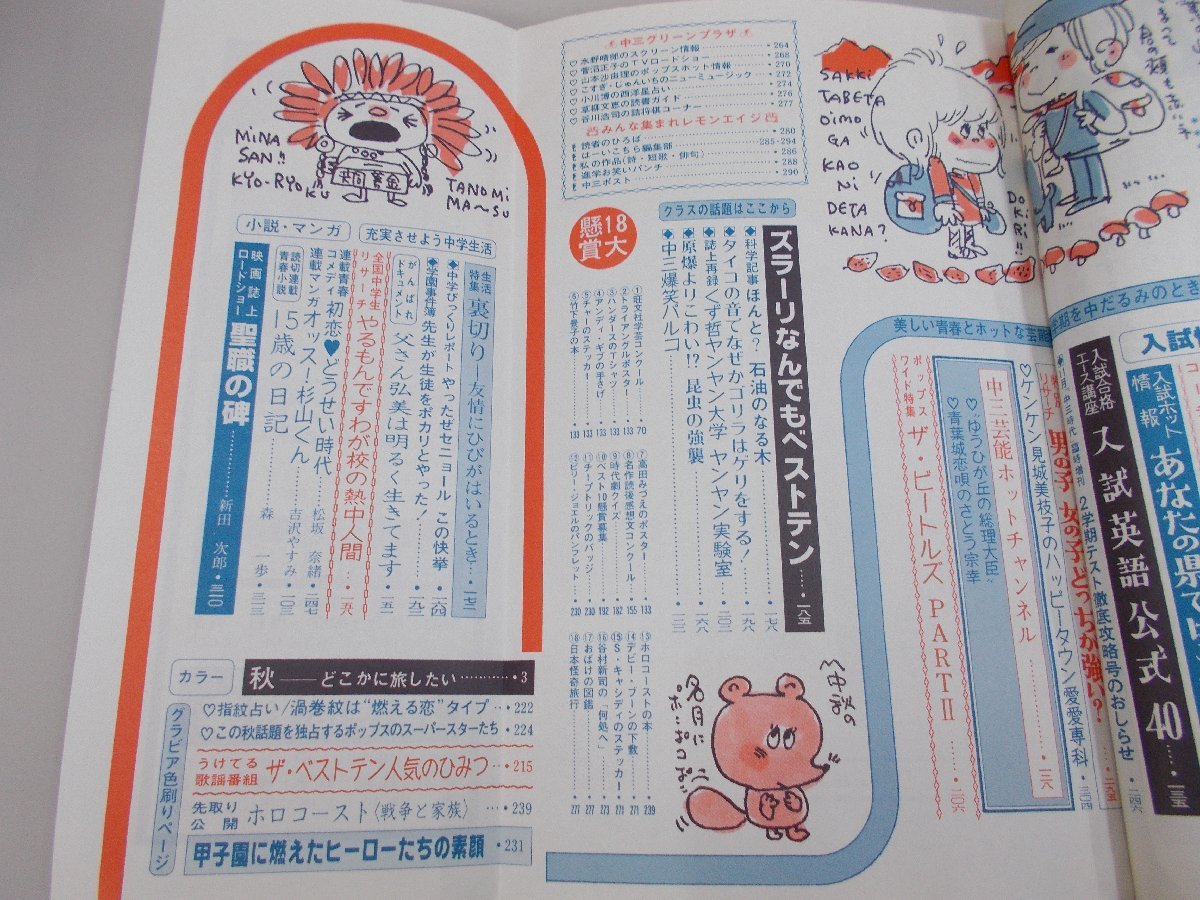 入試
入試ホット情報
あなたの県では
入試合格エース講座
入試英語公式40
2学期テスト徹底攻略号のおしらせ
男の子 女の子どっちが強い?
美しい青春とホットな芸能
♡ケンケン見城美枝子のハッピータウン 愛愛専科
中三芸能ホットチャンネル
♡“ゆうひが丘の総理大臣”
♡青葉城恋唄のさとう宗幸
ポップスワイド特集
ザ・ビートルズ PARTⅡ
SAKKi
TABETA
OiMO
GA
KAO
Ni
DETA
KANA?
DOKiRi!!
中三グリーンプラザ
♡水野晴郎のスクリーン情報・264
♡菅沼正子のTVロードショー・268
♡山本沙由理のポップスホット情報・270
♡こすぎ・じゅんいちのニューミュージック・272
♡小川博の西洋星占い・274
♡草柳文恵の読書ガイド・276
♡谷川浩司の詰将棋コーナー・277
みんな集まれレモンエイジ
読者のひろば・280
はーいこちら編集部・285・294
私の作品(詩・短歌・俳句)・286
進学お笑いパンチ・288
中三ポスト・290
クラスの話題はここから
ズラーリなんでもベストテン……一八五
◆科学記事 ほんと? 石油のなる木……一七八
◆タイコの音でなぜかゴリラはゲリをする!…一九八
◆誌上再録 くず哲ヤンヤン大学 ヤンヤン実験室……二〇二
◆原爆よりこわい!? 昆虫の強襲……一六八
◆中三爆笑パルコ……二一二
18大懸賞
①旺文社学芸コンクール・70
②トライアングルポスター・133
③ハンダースのTシャツ・133
④アンディ・ギブの手さげ・133
⑤チャーのステッカー・133
⑥竹下景子の本・133
⑦高田みづえのポスター・133
⑧名作読後感想文コンクール・155
⑨時代劇クイズ・182
⑩ベスト10懸賞募集・192
⑪チープトリックのバッジ・230
⑫ビリー・ジョエルのパンフレット・230
⑬ホロコーストの本・239
⑭デビー・ブーンの下敷・271
⑮S・キャシディのステッカー・271
⑯谷村新司の「何処へ」・271
⑰おばけの図鑑・273
⑱日本怪奇旅行・277
名月に
ポンポコポン
MiNA
SAN!!
KYO-RYOKU
TANOMi
MA〜SU
充実させよう中学生活
生活特集
裏切り—友情にひびがはいるとき…一七二
◆中学びっくりレポート やったぜセニョール この快挙・一六四
◆学園事件簿 先生が生徒をポカリとやった!・一九二
がんばれドキュメント
父さん弘美は明るく生きてます・一五一
全国中学生リサーチ
やるもんですわが校の熱中人間…一五八
小説・マンガ
連載青春コメディ
初恋♥どうせい時代……松坂 奈緒・二四七
連載マンガ
オッス!杉山くん……吉沢やすみ・一〇三
読切連載青春小説
15歳の日記……森 一歩・三一三
映画誌上ロードショー
聖職の碑……新田 次郎・三一〇
カラー
秋――どこかに旅したい……・3
グラビア色刷りページ
♡指紋占い/渦巻紋は“燃える恋”タイプ…・222
♡この秋話題を独占するポップスのスーパースターたち・224
うけてる歌謡番組
ザ・ベストテン人気のひみつ…・215
先取り公開
ホロコースト〈戦争と家族〉…・239
甲子園に燃えたヒーローたちの素顔・231